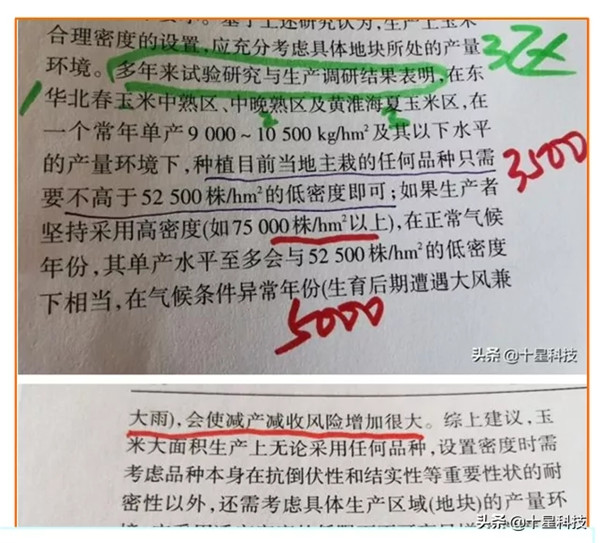 合理密度的设置,应充分考虑具体地块所处的产量
环境。多年来试验研究与生产调研结果表明,在东
华北春玉米中熟区、中晚熟区及黄淮海夏玉米区,在
一个常年单产9 000~10 500 kg/hm²及其以下水平
的产量环境下,种植目前当地主栽的任何品种只需
3500
要不高于52 500株/hm²的低密度即可;如果生产者
坚持采用高密度(如75 000株/hm²以上),在正常气候
年份,其单产水平至多会与52 500株/hm²的低密度
下相当,在气候条件异常年份(生育后期遭遇大风兼
5000
头条 @十星科技
大雨),会使减产减收风险增加很大。综上建议,玉
米大面积生产上无论采用任何品种,设置密度时需
考虑品种本身在抗倒伏性和结实性等重要性状的耐
密性以外,还需考虑具体生产区域(地块)的产量环
头条 @十星科技